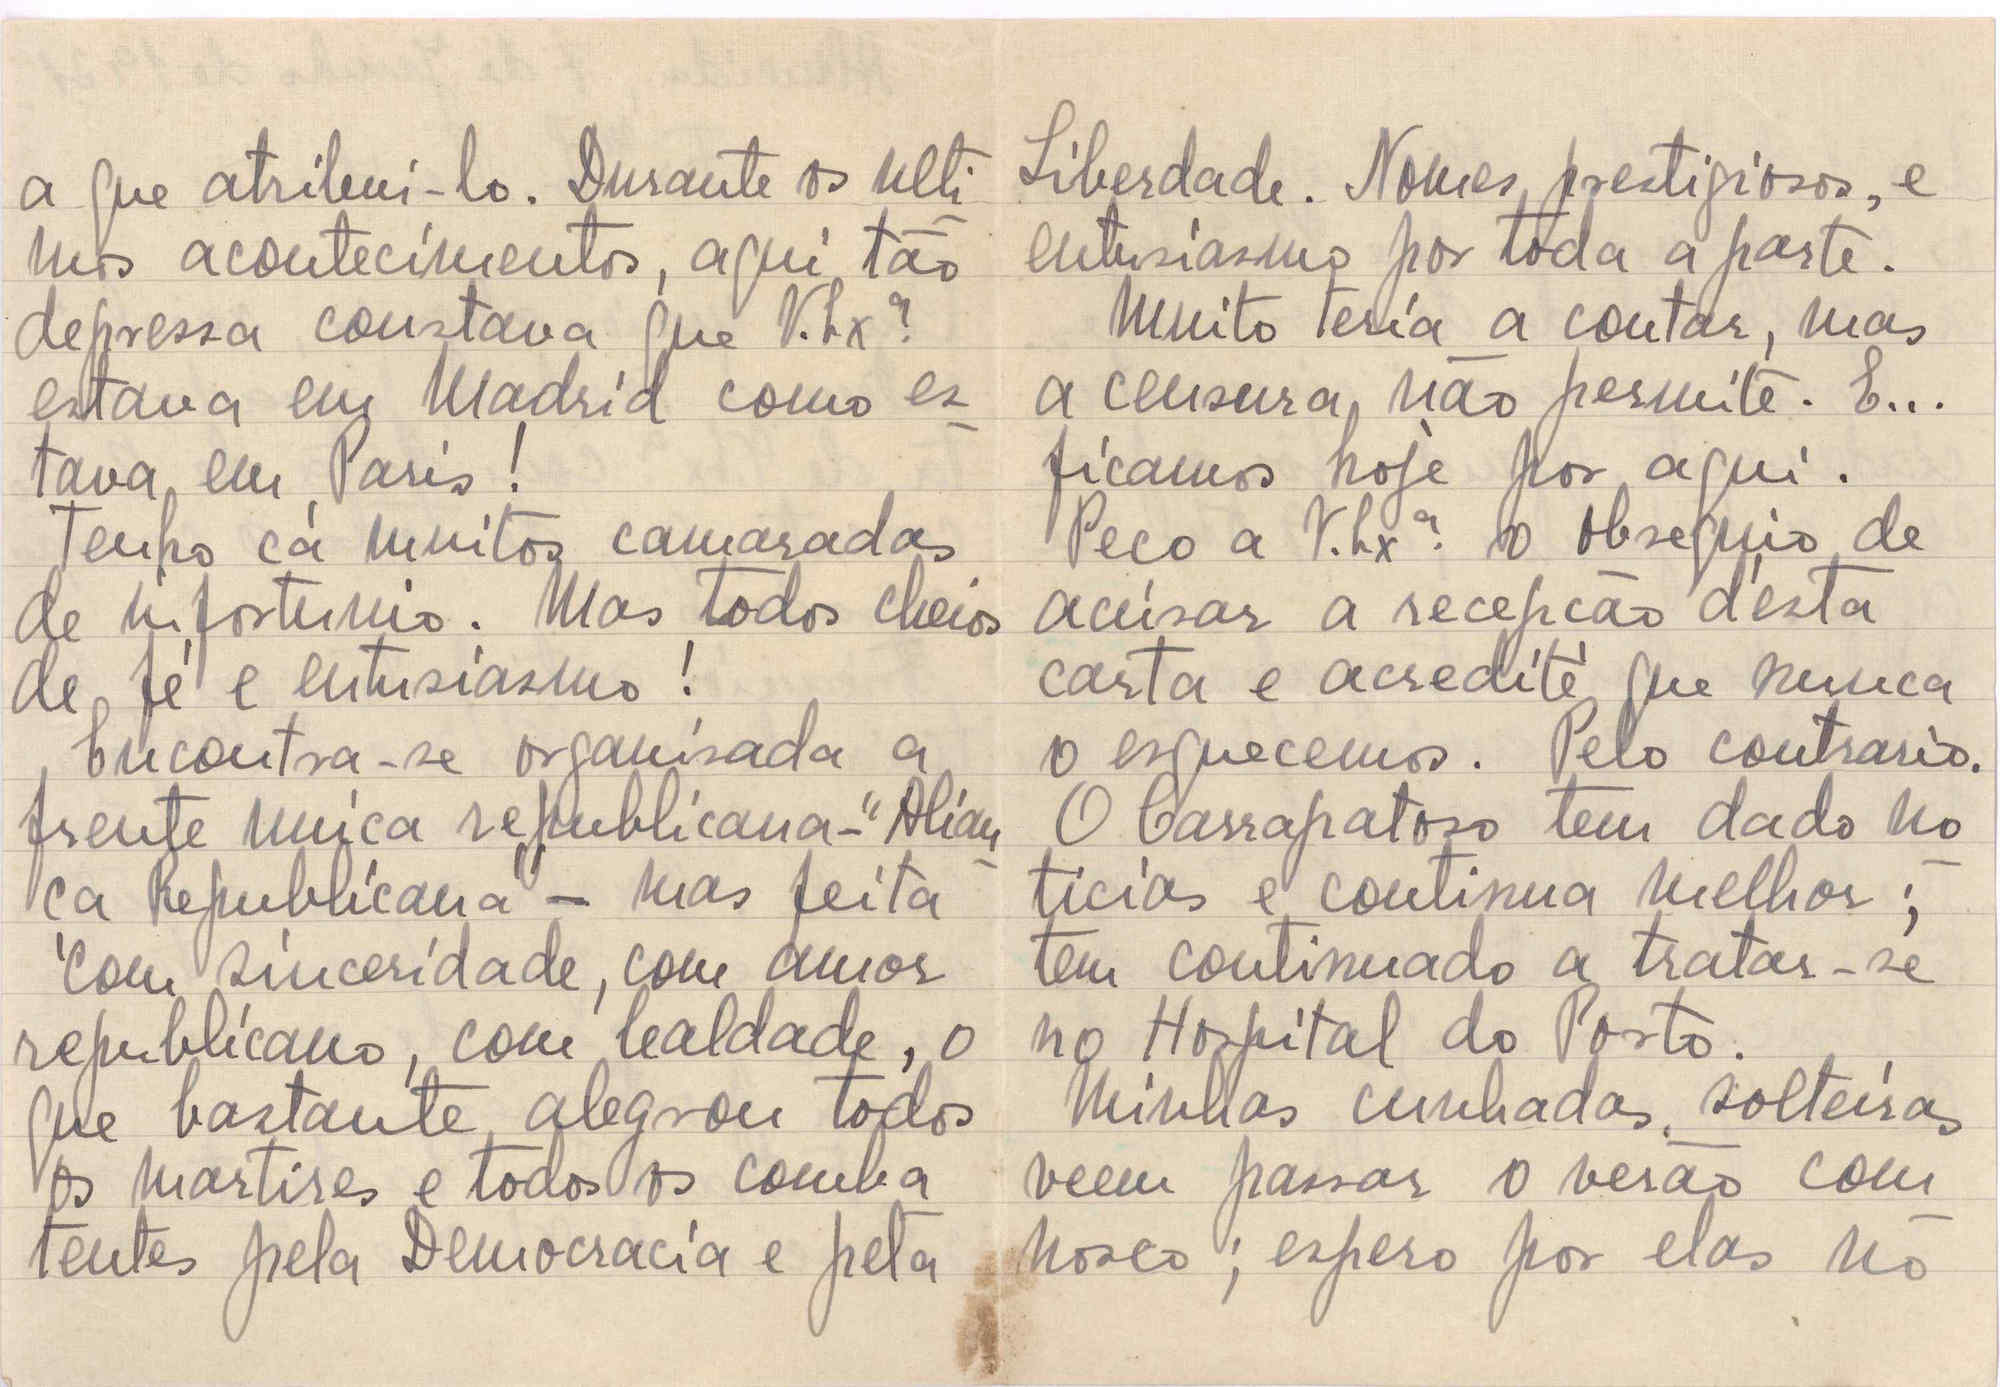 a que atribui-lo. Durante os ulti
mos acontecimentos, aqui tão
depressa constava que V.Exª
estava em Madrid como es-
tava em Paris!
Tenho cá muitos camaradas
de infortunio. Mas todos cheios
de fé e entusiasmo!
Encontra-se organisada a
frente unica republicana - "Alian-
ça Republicana" - mas feita
com sinceridade, com amor
republicano, com lealdade, o
que bastante alegrou todos
os martires e todos os comba
tentes pela Democracia e pela
Liberdade. Nomes prestigiosos, e
entusiasmo por toda a parte.
Muito teria a contar, mas
a censura não permite. E...
ficamos hoje por aqui.
Peço a V.Exª. o obsequio de
acusar a recepção d'esta
carta e acredite que nunca
o esquecemos. Pelo contrario.
O Carrapatoso tem dado no-
ticias e continua melhor;
tem continuado a tratar-se
no Hospital do Porto.
Minhas cunhadas, solteiras
veem passar o verão com
nosco; espero por elas nó